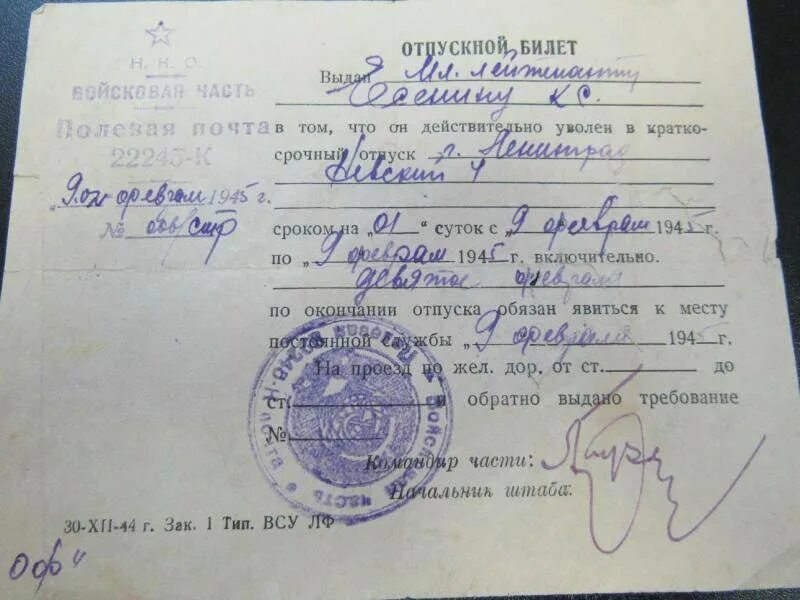 Н. К. О.
ВОЙСКОВАЯ ЧАСТЬ
Полевая почта
22245-К
"9. 02 февраля 1945 г.
№ /стр
ОТПУСКНОЙ БИЛЕТ
Выдан Мл. лейтенанту
Есенину К.С.
в том, что он действительно уволен в кратко-
срочный отпуск г. Ленинград
Невский 4
сроком на „01“ суток с „9 февраля 1945 г.
по „9 февраля 1945 г. включительно.
девятое февраля
по окончании отпуска обязан явиться к месту
постоянной службы „9 февраля 1945 г.
На проезд по жел. дор. от ст. до
ст. и обратно выдано требование
№
Командир части:
Начальник штаба:
Войсковая часть Полевая почта
30-XII-44 г. Зак. 1 Тип. ВСУ ЛФ
Оф"